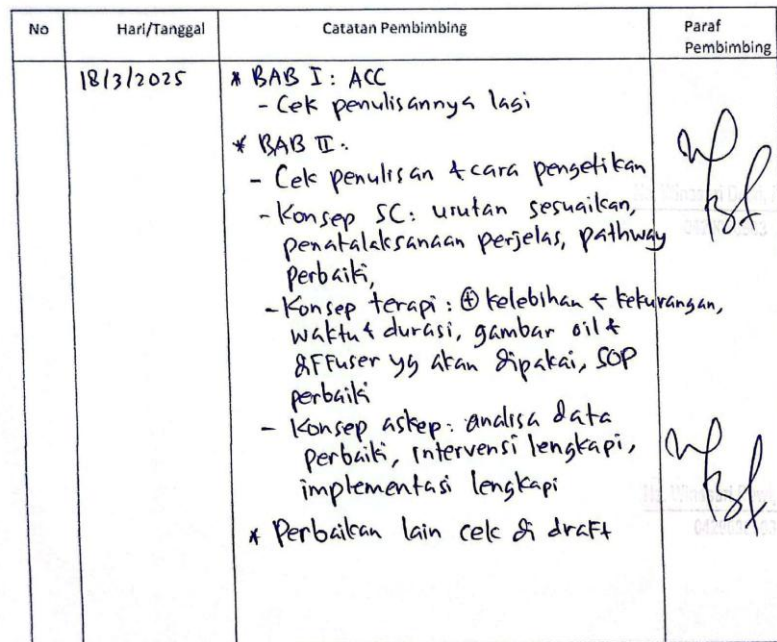 No Hari/Tanggal Catatan Pembimbing Paraf
Pembimbing
18/3/2025 * BAB I : ACC
- Cek penulisannya lagi
* BAB II :
- Cek penulisan & cara pengetikan
- Konsep SC : urutan sesuaikan,
penatalaksanaan perjelas, pathway
perbaiki,
- Konsep terapi : ⊕ kelebihan & kekurangan,
waktu & durasi, gambar oil &
diffuser yg akan dipakai, SOP
perbaiki
- Konsep askep : analisa data
perbaiki, intervensi lengkapi,
implementasi lengkapi
* Perbaikan lain cek di draft